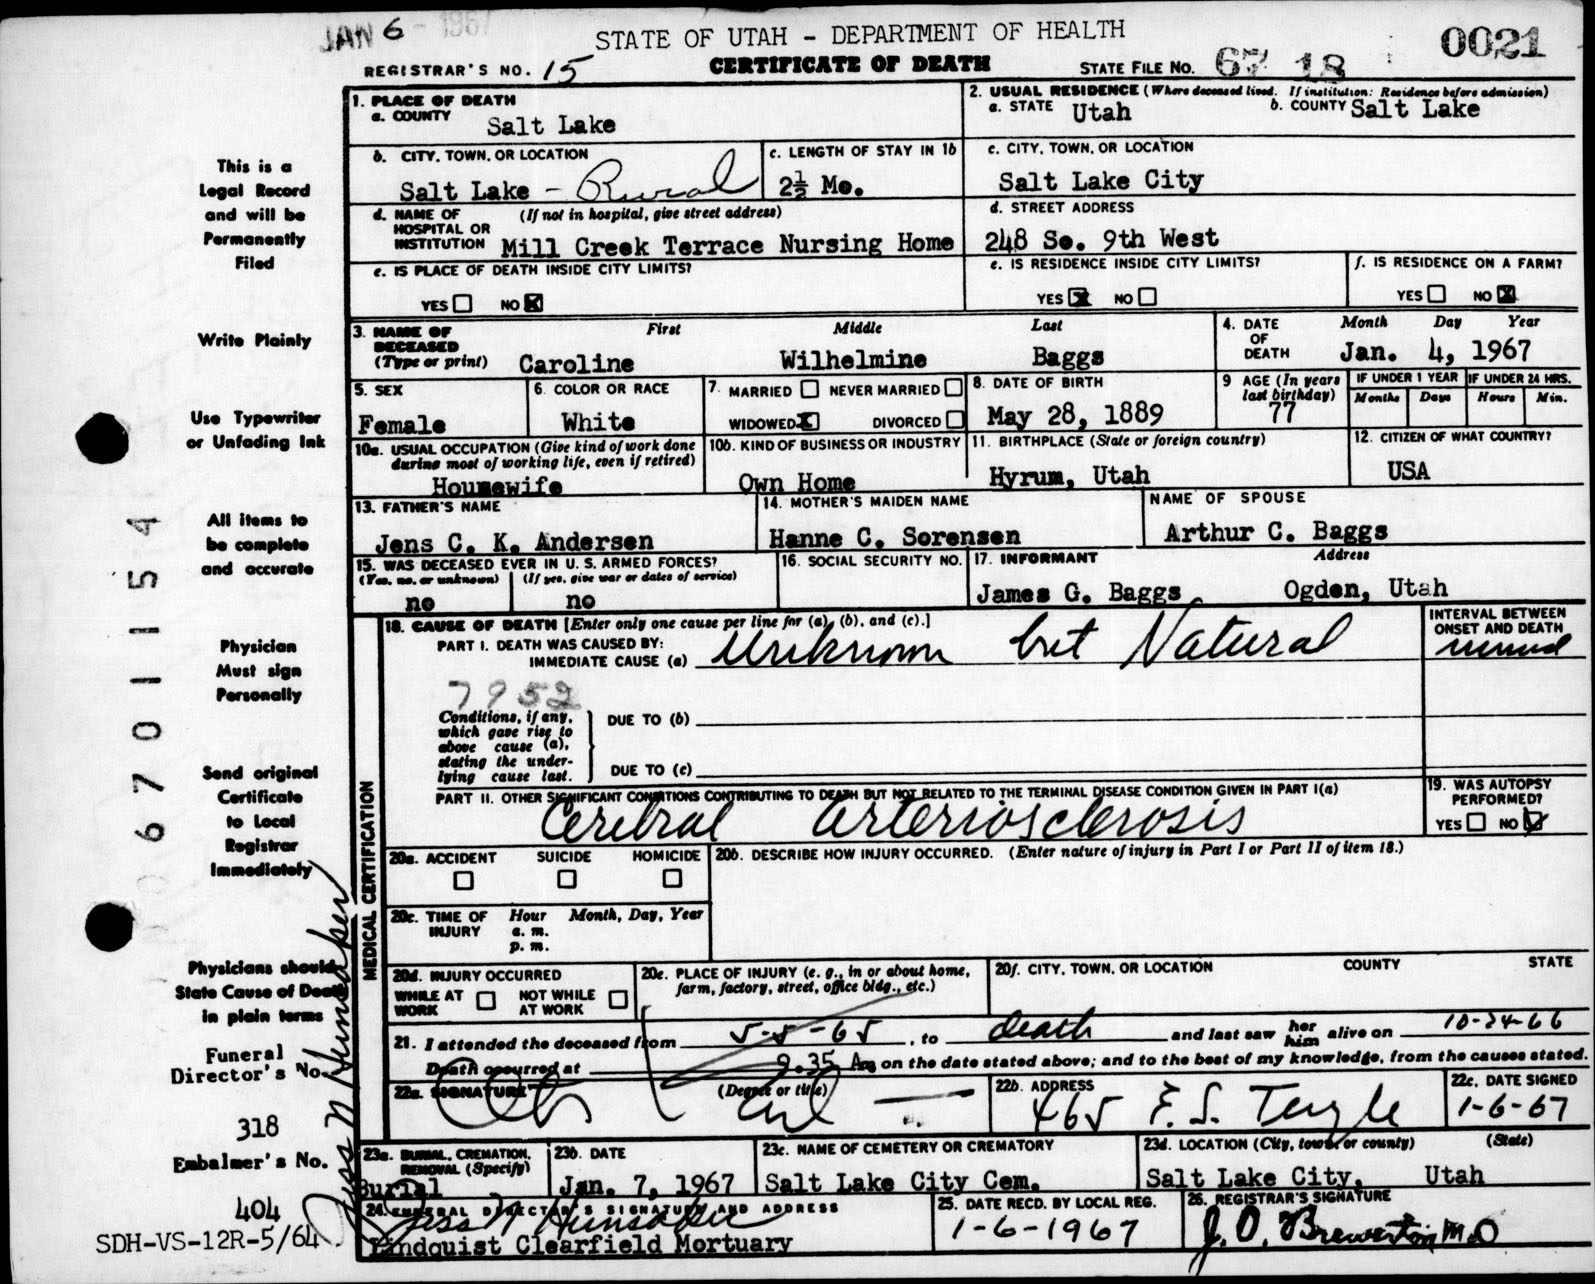 JAN 6 - 1967
STATE OF UTAH - DEPARTMENT OF HEALTH
0021
REGISTRAR'S NO. 15
CERTIFICATE OF DEATH
STATE FILE NO. 67 18
1. PLACE OF DEATH
a. COUNTY Salt Lake
2. USUAL RESIDENCE (Where deceased lived. If institution: Residence before admission)
a. STATE Utah b. COUNTY Salt Lake
b. CITY, TOWN, OR LOCATION
Salt Lake - Rural
c. LENGTH OF STAY IN 1b
2½ Mo.
c. CITY, TOWN, OR LOCATION
Salt Lake City
d. NAME OF HOSPITAL OR INSTITUTION (If not in hospital, give street address)
Mill Creek Terrace Nursing Home
d. STREET ADDRESS
248 So. 9th West
e. IS PLACE OF DEATH INSIDE CITY LIMITS?
YES NO X
e. IS RESIDENCE INSIDE CITY LIMITS?
YES X NO
f. IS RESIDENCE ON A FARM?
YES NO X
3. NAME OF DECEASED (Type or print)
First Middle Last
Caroline Wilhelmine Baggs
4. DATE OF DEATH
Month Day Year
Jan. 4, 1967
5. SEX
Female
6. COLOR OR RACE
White
7. MARRIED NEVER MARRIED
WIDOWED X DIVORCED
8. DATE OF BIRTH
May 28, 1889
9 AGE (In years last birthday)
77
IF UNDER 1 YEAR
Months Days
IF UNDER 24 HRS.
Hours Min.
10a. USUAL OCCUPATION (Give kind of work done during most of working life, even if retired)
Housewife
10b. KIND OF BUSINESS OR INDUSTRY
Own Home
11. BIRTHPLACE (State or foreign country)
Hyrum, Utah
12. CITIZEN OF WHAT COUNTRY?
USA
13. FATHER'S NAME
Jens C. K. Andersen
14. MOTHER'S MAIDEN NAME
Hanne C. Sorensen
NAME OF SPOUSE
Arthur C. Baggs
15. WAS DECEASED EVER IN U. S. ARMED FORCES?
(Yes, no, or unknown) (If yes, give war or dates of service)
no no
16. SOCIAL SECURITY NO.
17. INFORMANT Address
James G. Baggs Ogden, Utah
MEDICAL CERTIFICATION
18. CAUSE OF DEATH [Enter only one cause per line for (a), (b), and (c).]
PART I. DEATH WAS CAUSED BY:
IMMEDIATE CAUSE (a) Unknown but Natural
INTERVAL BETWEEN ONSET AND DEATH
7952
Conditions, if any, which gave rise to above cause (a), stating the underlying cause last.
DUE TO (b)
DUE TO (c)
PART II. OTHER SIGNIFICANT CONDITIONS CONTRIBUTING TO DEATH BUT NOT RELATED TO THE TERMINAL DISEASE CONDITION GIVEN IN PART I(a)
Cerebral arteriosclerosis
19. WAS AUTOPSY PERFORMED?
YES NO
20a. ACCIDENT SUICIDE HOMICIDE
20b. DESCRIBE HOW INJURY OCCURRED. (Enter nature of injury in Part I or Part II of item 18.)
20c. TIME OF INJURY Hour Month, Day, Year
a. m.
p. m.
20d. INJURY OCCURRED
WHILE AT WORK NOT WHILE AT WORK
20e. PLACE OF INJURY (e. g., in or about home, farm, factory, street, office bldg., etc.)
20f. CITY, TOWN, OR LOCATION COUNTY STATE
21. I attended the deceased from 5-5-65, to death and last saw her him alive on 10-24-66
Death occurred at 9:35 A m on the date stated above; and to the best of my knowledge, from the causes stated.
22a. SIGNATURE (Degree or title)
22b. ADDRESS
465 E. S. Temple
22c. DATE SIGNED
1-6-67
23a. BURIAL, CREMATION, REMOVAL (Specify)
Burial
23b. DATE
Jan. 7, 1967
23c. NAME OF CEMETERY OR CREMATORY
Salt Lake City Cem.
23d. LOCATION (City, town, or county) (State)
Salt Lake City, Utah
24. FUNERAL DIRECTOR'S SIGNATURE AND ADDRESS
Jess N Hunsaker
Lindquist Clearfield Mortuary
25. DATE RECD. BY LOCAL REG.
1-6-1967
26. REGISTRAR'S SIGNATURE
J. O. Brewerton M.D
This is a
Legal Record
and will be
Permanently
Filed
Write Plainly
Use Typewriter
or Unfading Ink
All items to
be complete
and accurate
Physician
Must sign
Personally
Send original
Certificate
to Local
Registrar
Immediately
Physicians should
State Cause of Death
in plain terms
Funeral
Director's No.
318
Embalmer's No.
404
SDH-VS-12R-5/64
Jess N Hunsaker
0 6 7 0 1 1 5 4